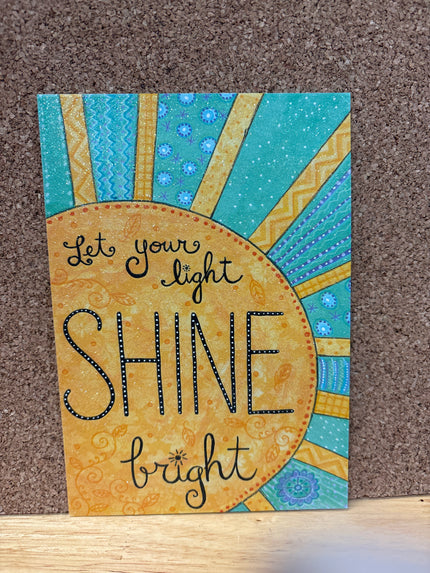 Let your
light
SHINE
bright